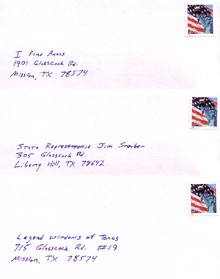 I Fine Arts
1901 Glasscock Rd.
Mission, TX 78574
State Representative Jim
305 Glasscock Rd.
Liberty Hill, TX 78642
Legend Windows of Texas
715 Glasscock Rd. #19
Mission, TX 78574